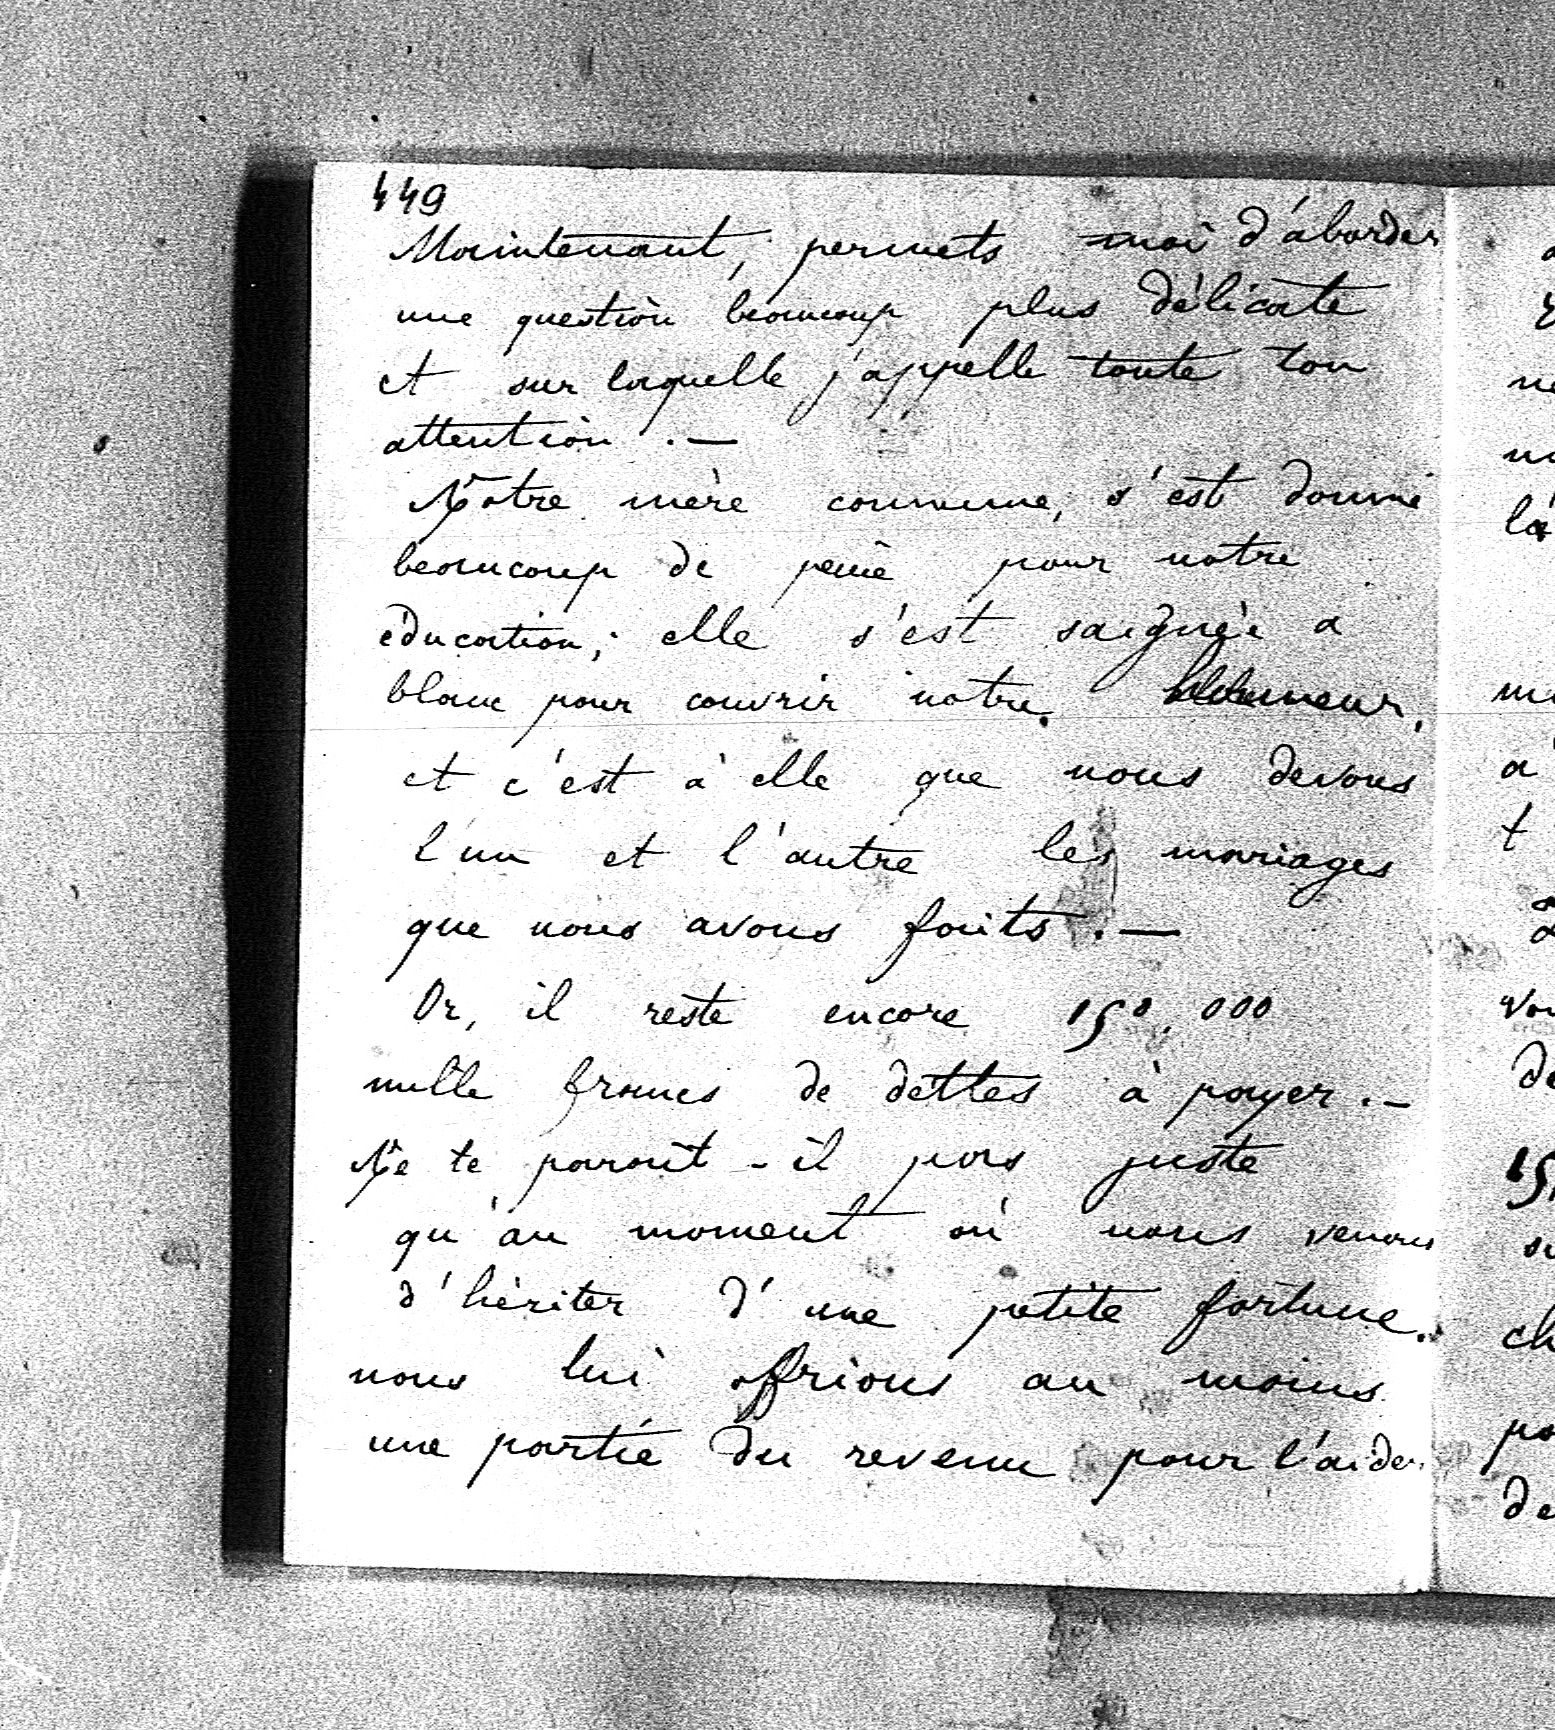 449
Maintenant, permets moi d'aborder
une question beaucoup plus délicate
et sur laquelle j'appelle toute ton
attention. —
Notre mère commune, s'est donné
beaucoup de peine pour notre
éducation; elle s'est saignée a
blanc pour couvrir notre
et c'est à elle que nous devons
l'un et l'autre les mariages
que nous avons faits. —
Or, il reste encore 150.000
mille francs de dettes à payer. —
Ne te parait-il pas juste
qu'au moment où nous venons
d'hériter d'une petite fortune.
nous lui offrions au moins
une partie du revenu pour l'aider